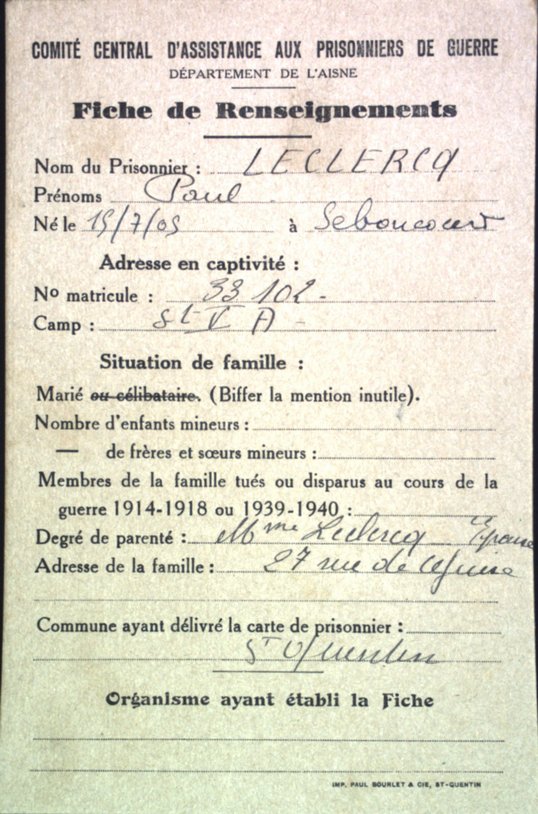 COMITÉ CENTRAL D'ASSISTANCE AUX PRISONNIERS DE GUERRE
DÉPARTEMENT DE L'AISNE
Fiche de Renseignements
Nom du Prisonnier : LECLERCQ
Prénoms Paul
Né le 15/7/09 à Seboncourt
Adresse en captivité :
No matricule : 33 102 -
Camp : St V A -
Situation de famille :
Marié ou célibataire. (Biffer la mention inutile).
Nombre d'enfants mineurs :
— de frères et sœurs mineurs :
Membres de la famille tués ou disparus au cours de la
guerre 1914-1918 ou 1939-1940 :
Degré de parenté : Mme Leclercq
Adresse de la famille : 27 rue de Guise
Commune ayant délivré la carte de prisonnier :
St Quentin
Organisme ayant établi la Fiche
IMP. PAUL BOURLET & CIE, ST-QUENTIN